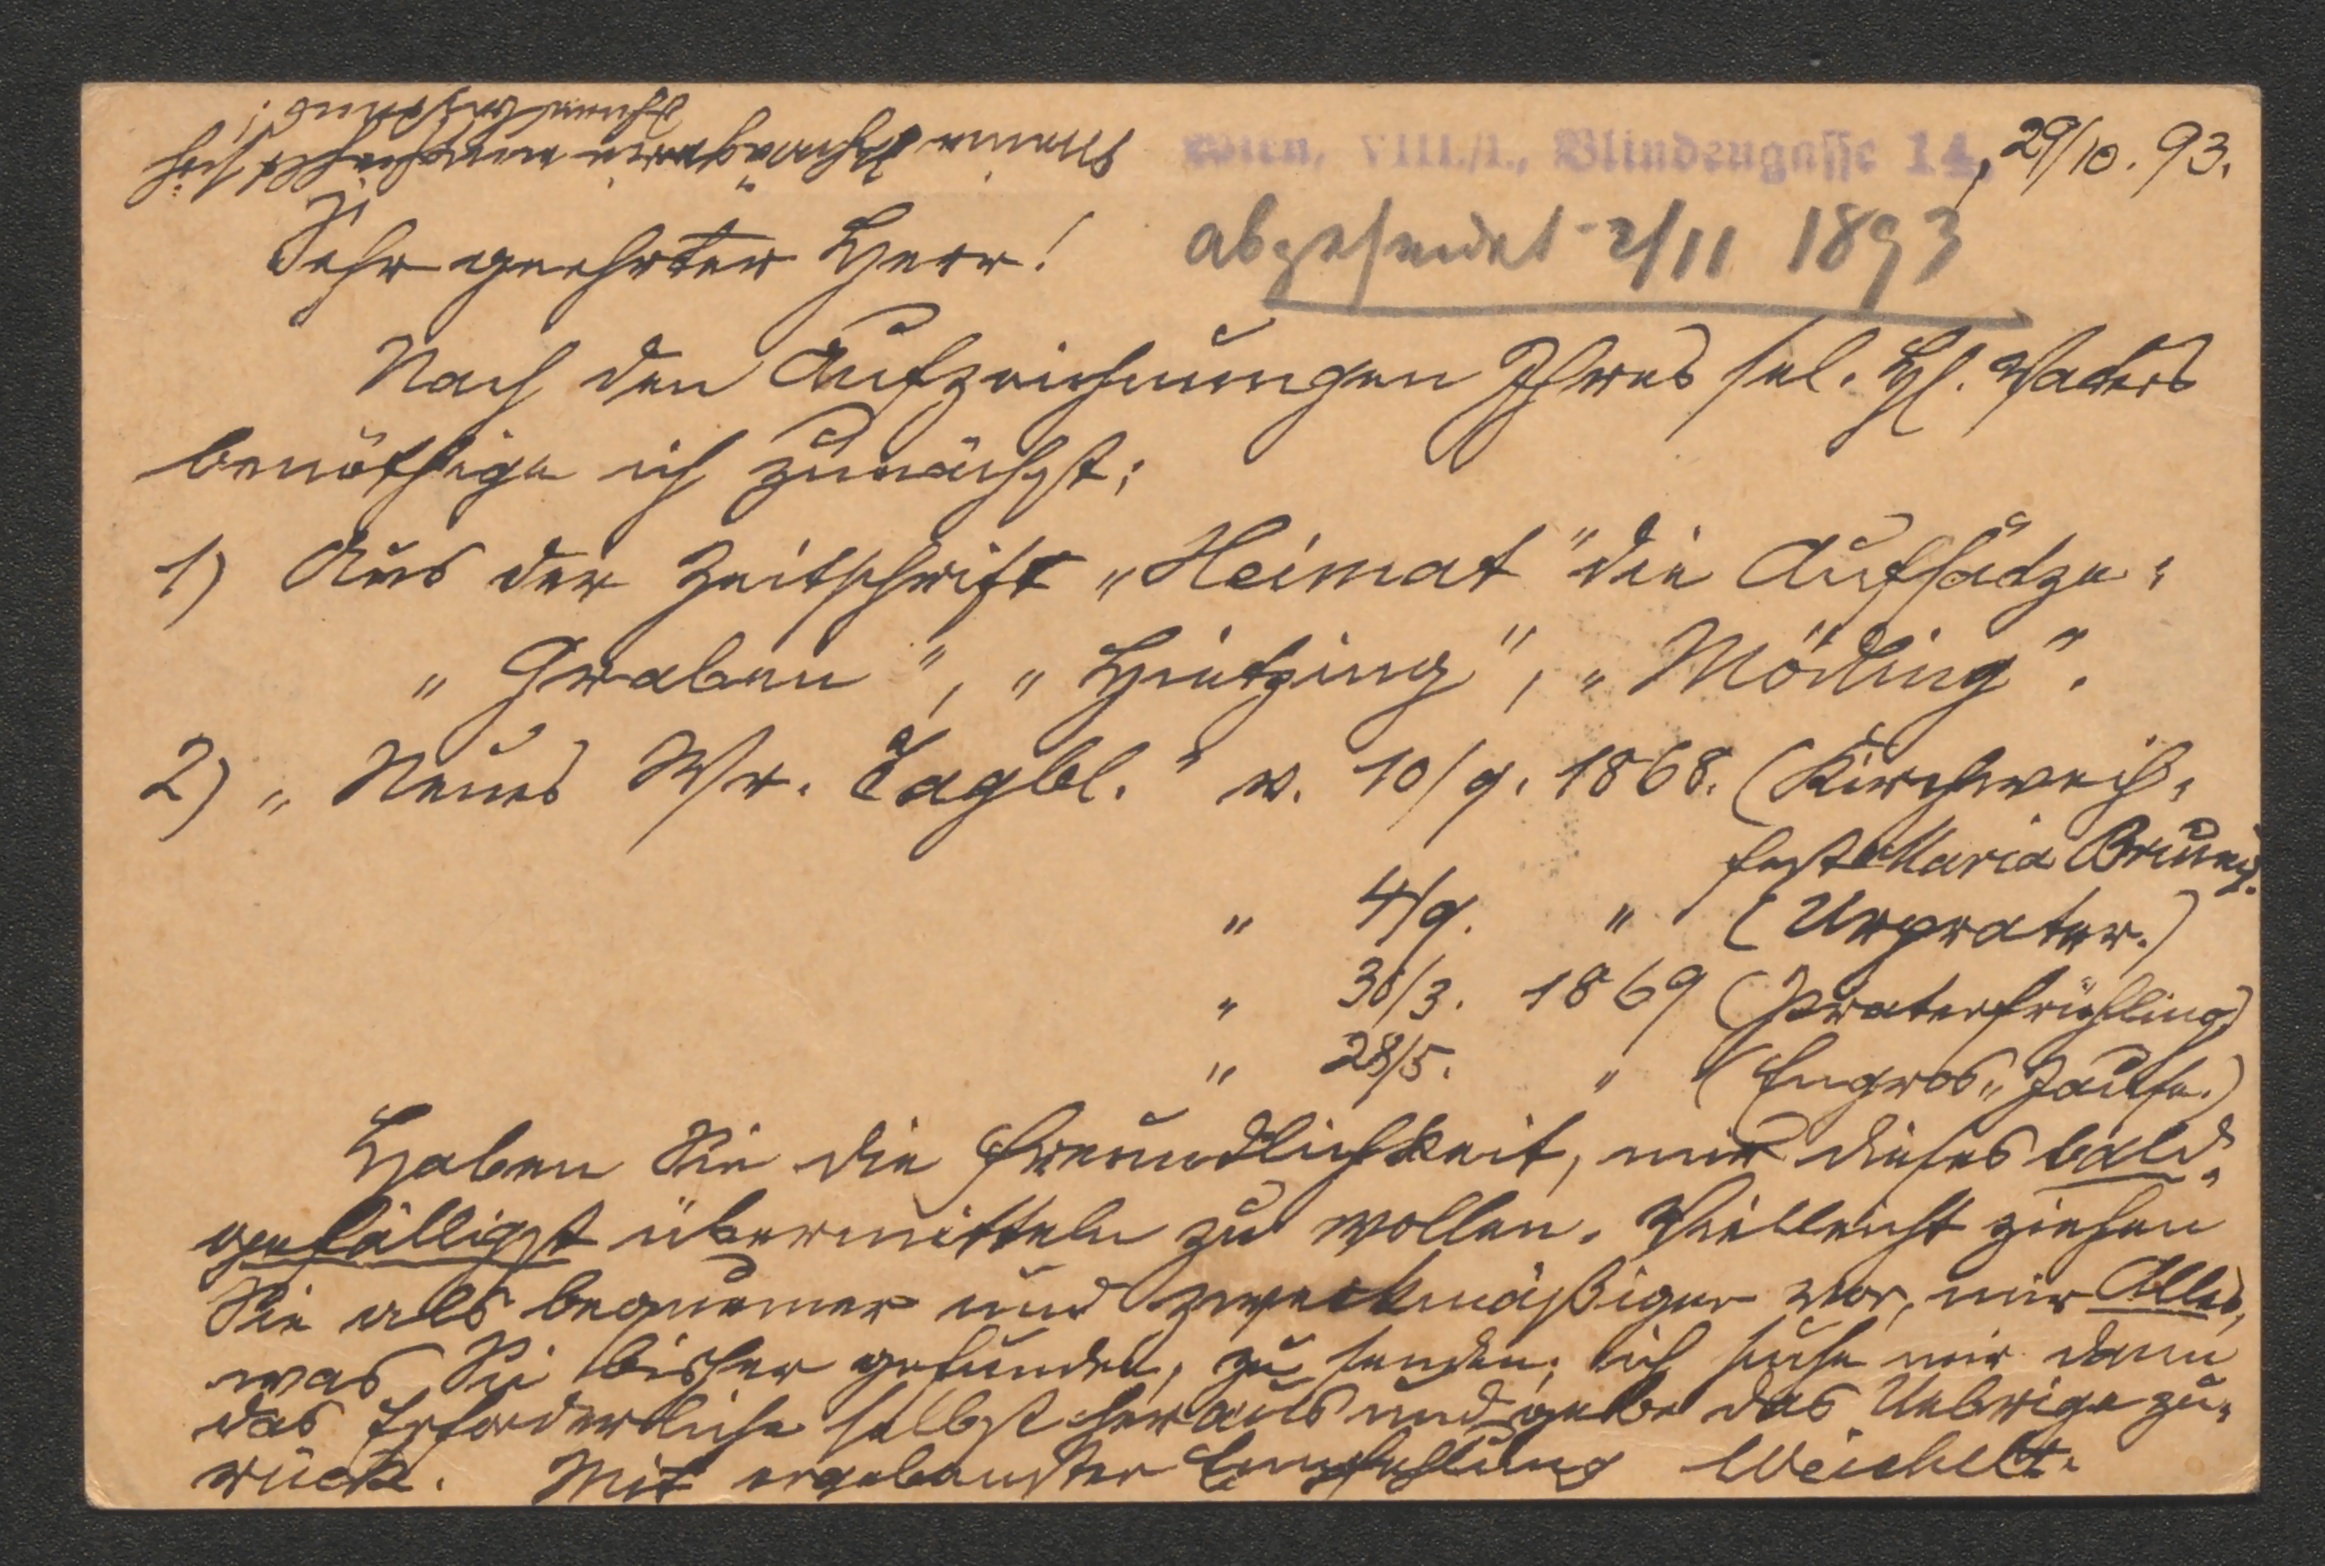 Wien, VIII./1., Blindengasse 14, 29/10. 93.
abgesendet 2/11 1893
Sehr geehrter Herr!
Nach den Aufzeichnungen Ihres sel. H. Vaters
benöthige ich zunächst:
1) Aus der Zeitschrift „Heimat" die Aufsätze:
„Graben", „Hietzing", „Mödling".
2) „Neues Wr. Tagbl." v. 10/9. 1868. (Kirchweih-
fest Maria Brunn).
" 4/9. " (Urprater.)
" 30/3. 1869 (Praterfrühling)
" 28/5. " (Engros-Jause.)
Haben Sie die Freundlichkeit, mir dieses bald-
gefälligst übermitteln zu wollen. Vielleicht ziehen
Sie als bequemer und zweckmäßiger vor, mir Alles,
was Sie bisher gefunden, zu senden; ich suche mir dann
das Erforderliche selbst heraus und gebe das Uebrige zu-
rück. Mit ergebenster Empfehlung Weichelt.
Meine Schwägerin empfiehlt sich